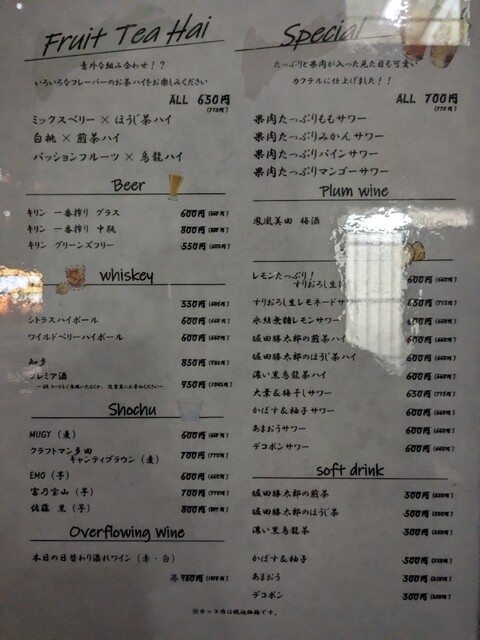 Fruit Tea Hai
意外な組み合わせ！？
いろいろなフレーバーのお茶ハイをお楽しみください
ALL 650円
ミックスベリー × ほうじ茶ハイ
白桃 × 煎茶ハイ
パッションフルーツ × 烏龍ハイ
Beer
キリン 一番搾り グラス 600円 (660円)
キリン 一番搾り 中瓶 800円 (880円)
キリン グリーンズフリー 550円 (605円)
whiskey
550円 (605円)
シトラスハイボール 600円 (660円)
ワイルドベリーハイボール 600円 (660円)
知多 850円 (935円)
プレミア酒 950円 (1045円)
Shochu
MUGY (麦) 600円 (660円)
クラフトマン多田
キャンティブラウン (麦) 700円 (770円)
EMO (芋) 600円 (660円)
富乃宝山 (芋) 700円 (770円)
佐藤 黒 (芋) 800円 (880円)
Overflowing Wine
本日の日替わり溢れワイン (赤・白)
980円
Special
たっぷりと果肉が入った見た目も可愛い
カクテルに仕上げました！！
ALL 700円
(770円)
果肉たっぷりももサワー
果肉たっぷりみかんサワー
果肉たっぷりパインサワー
果肉たっぷりマンゴーサワー
Plum wine
鳳凰美田 梅酒
レモンたっぷり！
すりおろし生 600円 (660円)
すりおろし生レモネードサワー 650円 (715円)
氷結無糖レモンサワー 600円 (660円)
堀田勝太郎の煎茶ハイ 600円 (660円)
堀田勝太郎のほうじ茶ハイ 600円 (660円)
濃い黒烏龍茶ハイ 600円 (660円)
大葉＆梅干しサワー 650円 (715円)
かぼす＆柚子サワー 600円 (660円)
あまおうサワー 600円 (660円)
デコポンサワー 600円 (660円)
soft drink
堀田勝太郎の煎茶 300円 (330円)
堀田勝太郎のほうじ茶 300円 (330円)
濃い黒烏龍茶 300円 (330円)
かぼす＆柚子 300円 (330円)
あまおう 300円 (330円)
デコポン 300円 (330円)
※カッコ内は税込価格です。